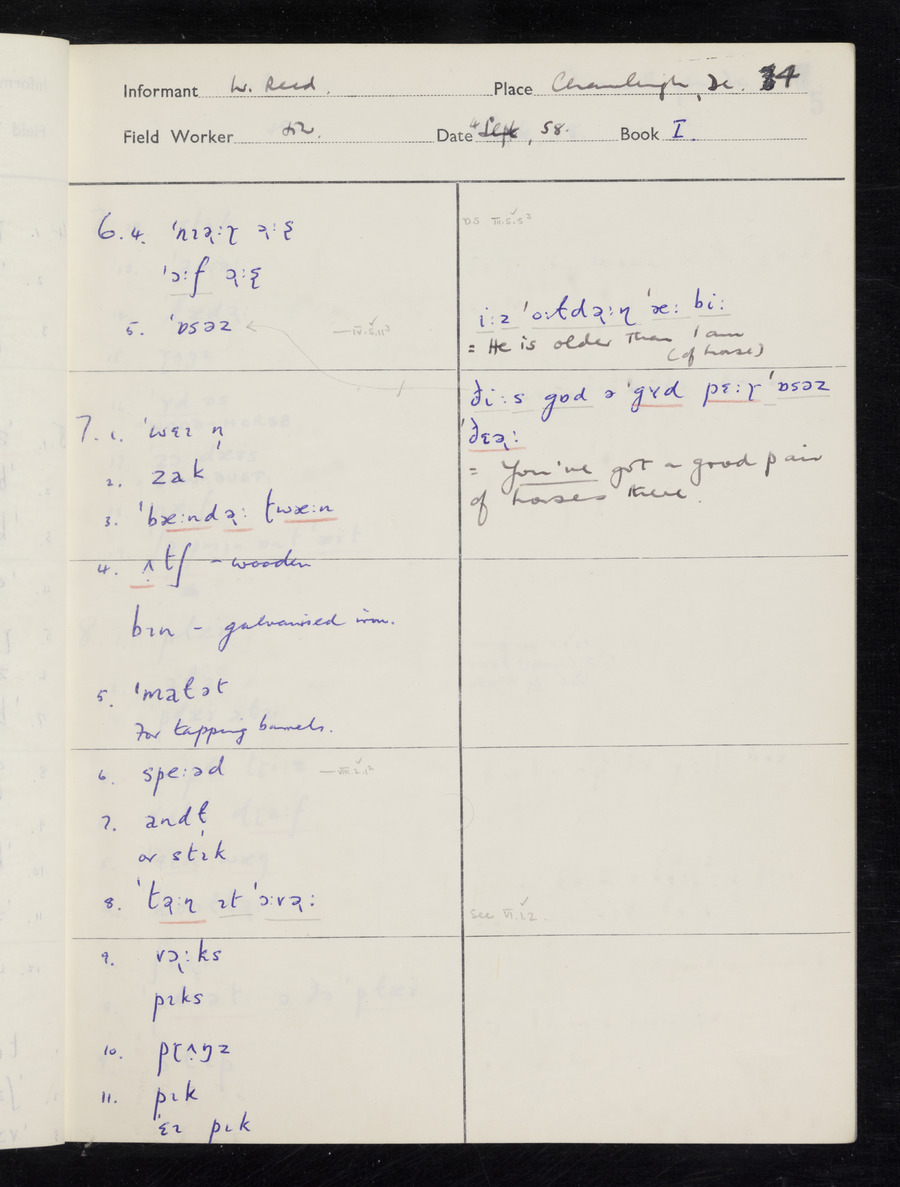 Informant W. Reed. Place Chawleigh, De. 34
Field Worker Date 4 Sept, 58. Book I.
6. 4. ˈnɪɚːɽ ɚːʂ
ˈɔːf ɚːʂ
5. ˈɒsəz
7. 1. ˈwɛɪ ɳ
2. zak
3. ˈbæːndɚː twæːn
4. ʌtʃ – wooden
bɪn – galvanised iron.
5. ˈmalət
For tapping barrels.
6. speːəd
7. andɫ
or stɪk
8. ˈtɚːɳ ɪt ˈɔːvɚː
9. vɔːks
pɪks
10. pɽʌŋz
11. pɪk
ˈɛɪ pɪk
iːz ˈoːɫdɚːɳ ˈæː biː
= He is older than I am
(of horse)
ðiːs gɒd ə ˈgʏd pɛːɽ ˈɒsəz
ˈðɛɚː
= You've got a good pair
of horses there.
See VI.1.2